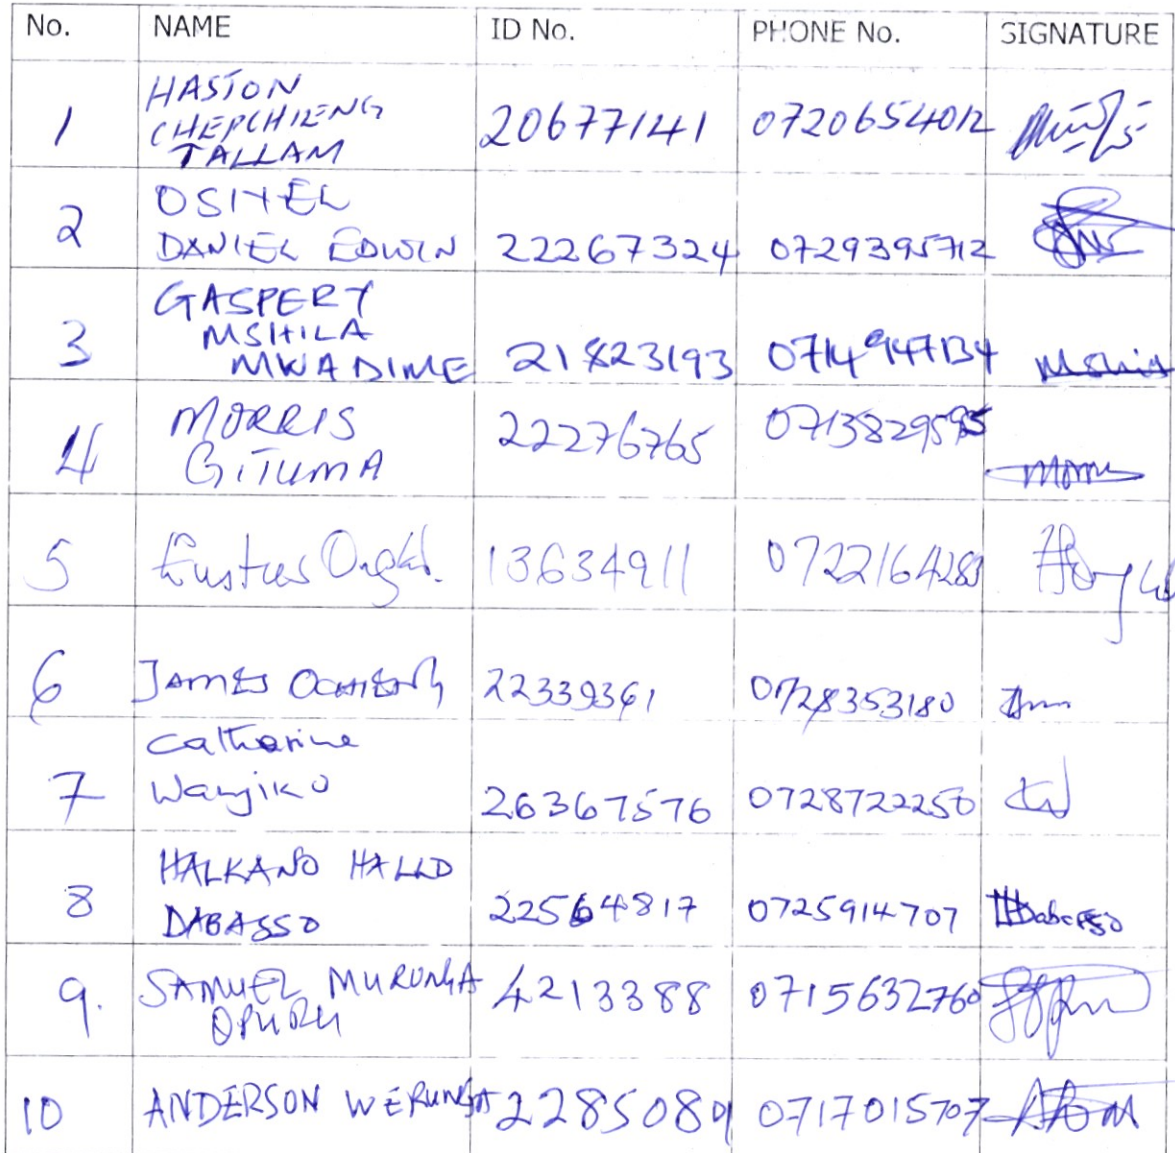 No. NAME ID No. PHONE No. SIGNATURE
HASTON
CHEPCHIENG
1 TALLAM 20677141 0720654012
OSITEL
2 DANIEL EDWIN 22267324 0729395712
GASPERY
MSHILA
3 MWADIME 21823193 0714947134
MORRIS
4 GITUMA 22276765 0713829595
5 13634911 0722164283
6 JAMES OCHIENG 22339361 0728353180
Catherine
7 Wanjiko 26367576 0728722250
HALKANO HALLD
8 DABASSO 22564817 0725914707 Dabasso
9. SAMUEL MURUNGA 4213388 0715632760
OPURU
10 ANDERSON WERUNGA 22850801 0717015707